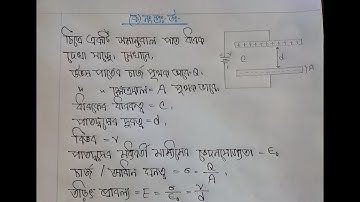 চিত্রে একটি সমান্তরাল পাত ধারক
দেখা যাচ্ছে, যেখানে,
প্রত্যেক পাতের চার্জ পৃথক ভাবে Q,
" " ক্ষেত্রফল = A পৃথক ভাবে,
ধারকের ধারকত্ব = C,
পাতদ্বয়ের দূরত্ব = d,
বিভব = V
পাতদ্বয়ের মধ্যবর্তী মাধ্যমের ভেদনযোগ্যতা = ε₀
চার্জ / আধান ঘনত্ব = σ = Q/A,
তড়িৎ প্রাবল্য = E = σ/ε₀ = V/d
C
d
A